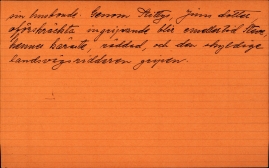 sin husbonde. Genom Kitty, Jims dotter,
oförskräckta ingripande blir emellertid Steve,
hennes käraste, räddad, och den skyldige
landsvägsriddaren gripen.